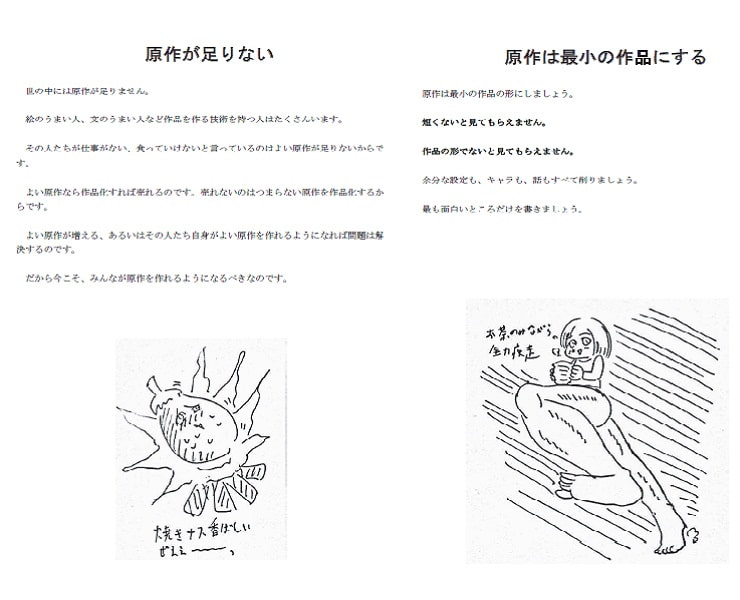 原作が足りない
世の中には原作が足りません。
絵のうまい人、文のうまい人など作品を作る技術を持つ人はたくさんいます。
その人たちが仕事がない、食っていけないと言っているのはよい原作が足りないからで
す。
よい原作なら作品化すれば売れるのです。売れないのはつまらない原作を作品化するか
らです。
よい原作が増える、あるいはその人たち自身がよい原作を作れるようになれば問題は解
決するのです。
だから今こそ、みんなが原作を作れるようになるべきなのです。
焼きナス香ばしい
ぜええ〜〜っ
原作は最小の作品にする
原作は最小の作品の形にしましょう。
短くないと見てもらえません。
作品の形でないと見てもらえません。
余分な設定も、キャラも、話もすべて削りましょう。
最も面白いところだけを書きましょう。
お茶のみながら
全力疾走